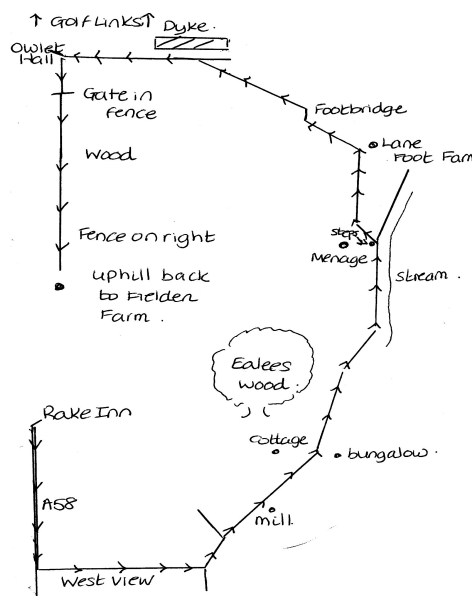 ↑ Golf Links ↑
Dyke.
Owlet
Hall
Gate in
fence
Wood
Fence on right
uphill back
to Fielden
Farm.
Footbridge
Lane
Foot Farm
steps
Menage
stream.
Ealees
Wood.
Cottage
bungalow.
mill.
Rake Inn
A58
West view